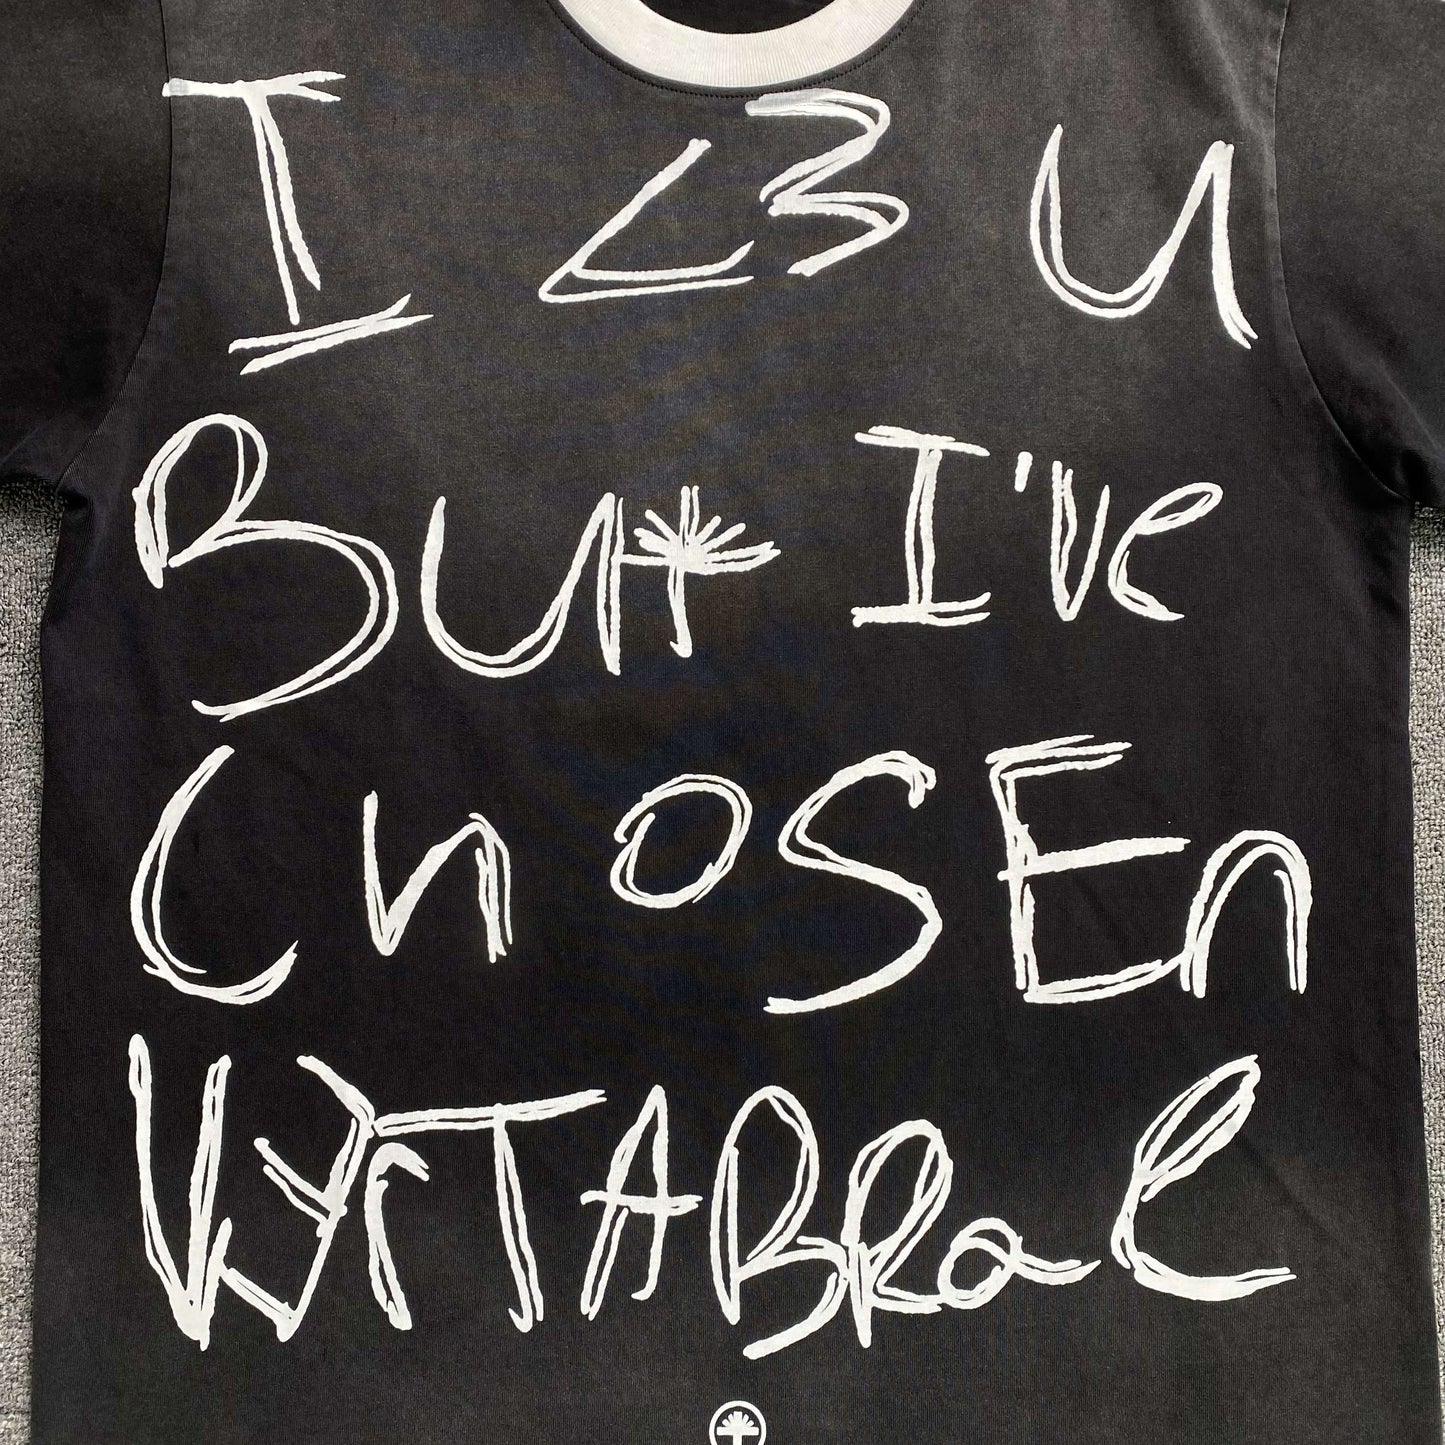 I <3 U
BUt I've
ChOSEn